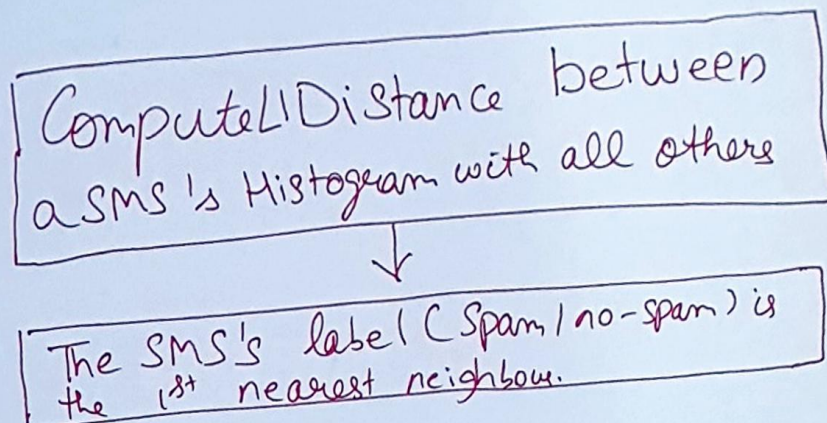 ComputeL1Distance between
a SMS's Histogram with all others
The SMS's label (Spam/no-spam) is
the 1st nearest neighbour.